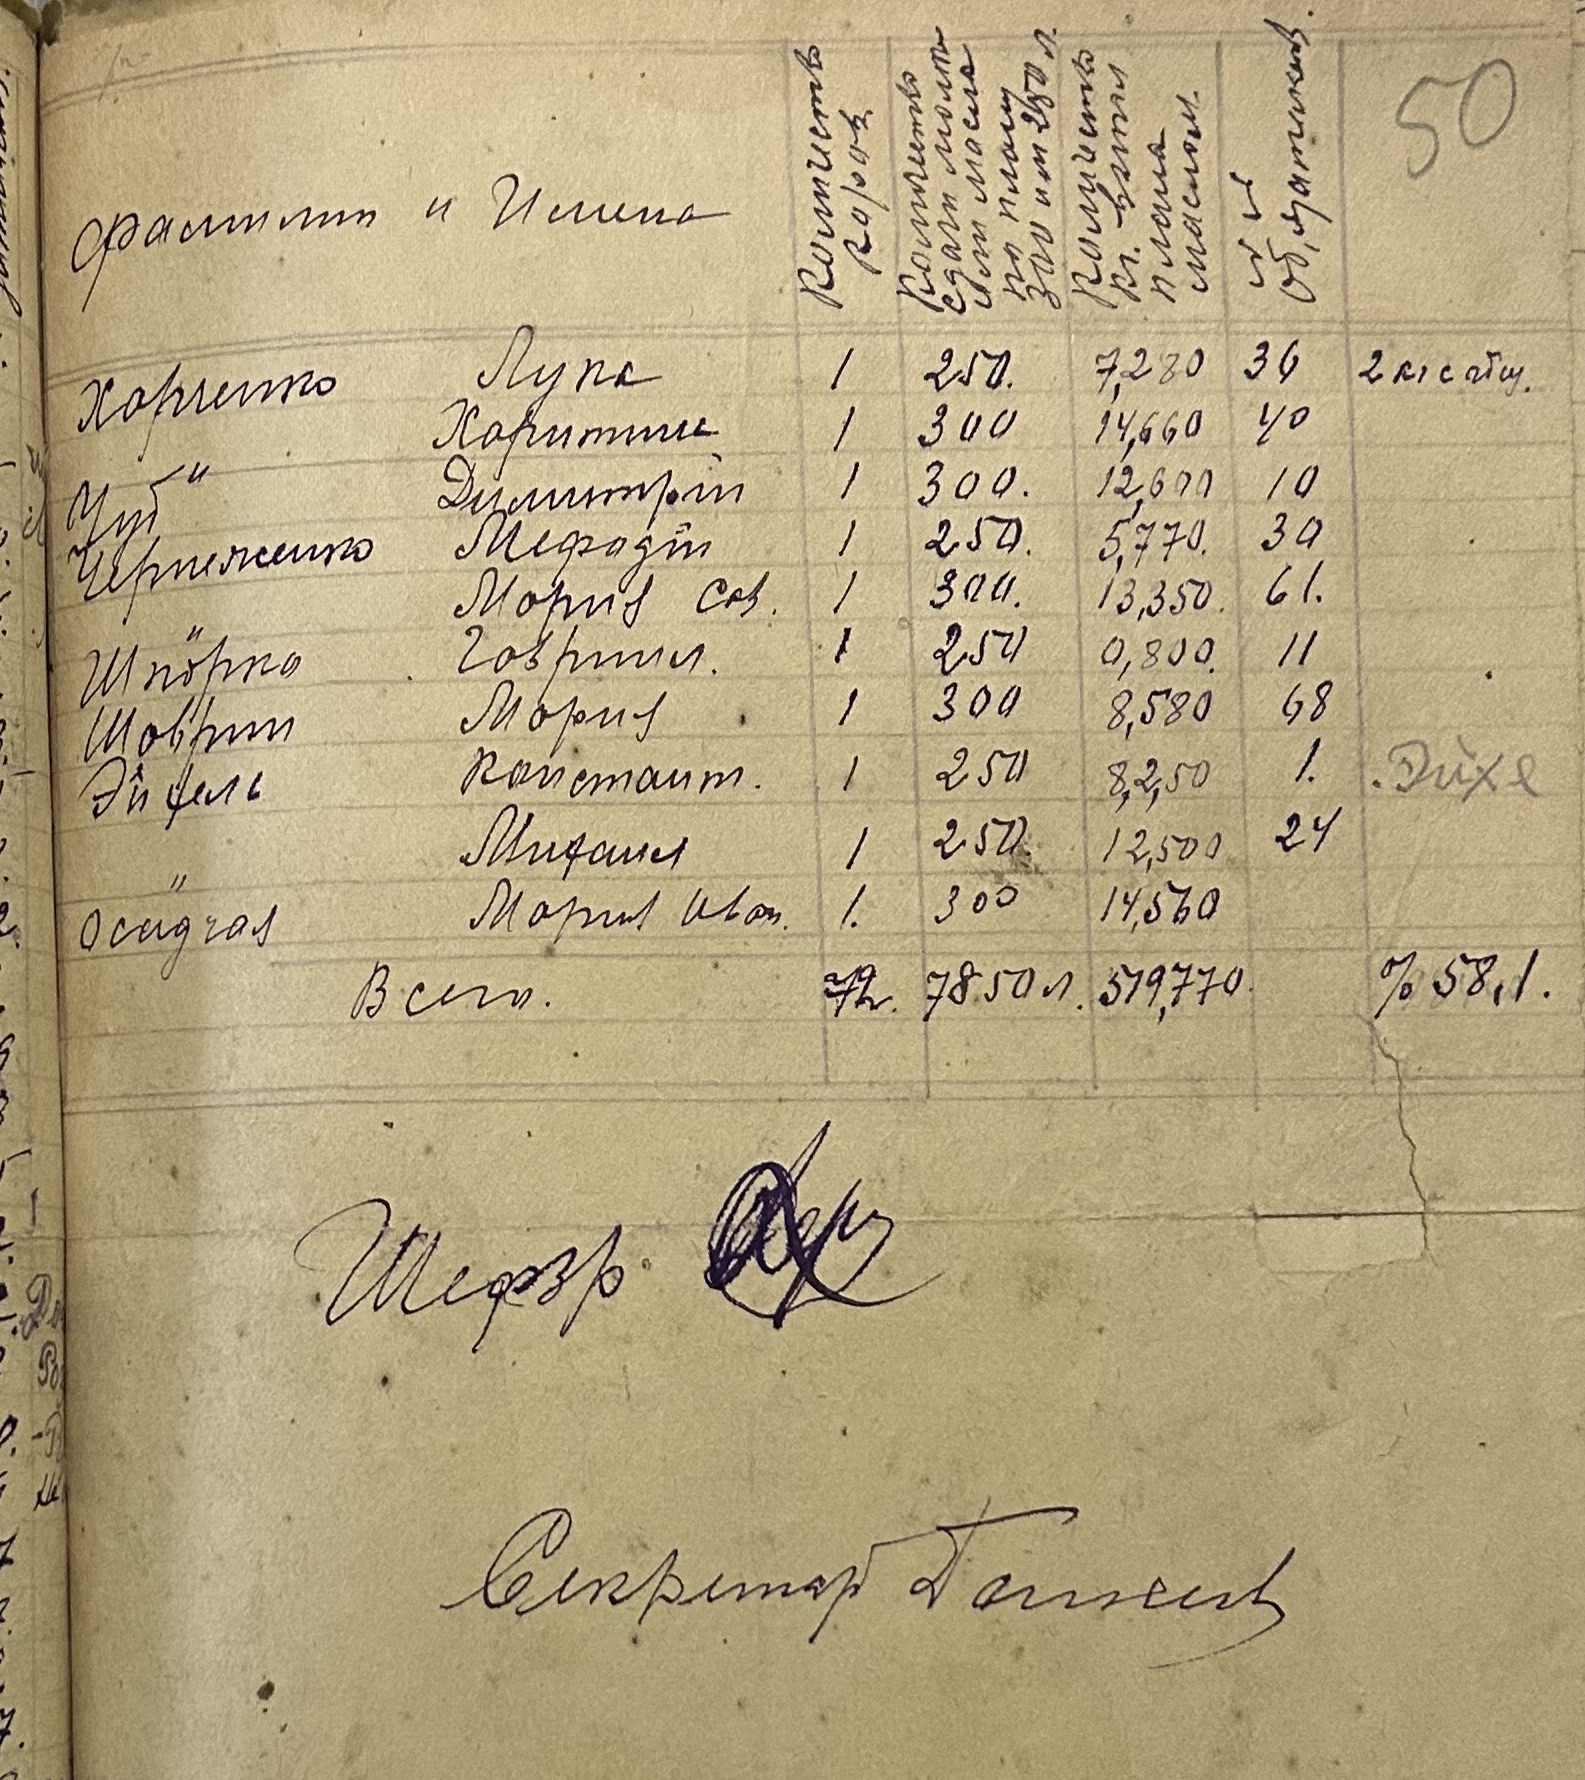 50
Фамилии и Имена
Количество Коров
Количество сдачи молока или масла по плану 300 или 250 л.
Количество кг. плана маслом.
Харченко Лука 1 250. 7,280 36 2
" Харитина 1 300 14,660 40
Чуб Димитрій 1 300. 12,600 10
Чернеженко Мефодій 1 250. 5,770. 30
Мария Сав. 1 300. 13,350. 61.
Шпорка Гавриил. 1 250 0,800. 11
Шаврин Мария 1 300 8,580 68
Эйхель Констант. 1 250 8,250 1. Эйхе
" Михаил 1 250. 12,500 24
Осадчая Мария Иван. 1. 300 14,560
Всего. 72. 7850 л. 519,770. % 58,1.
Шефзр.
Секретарь